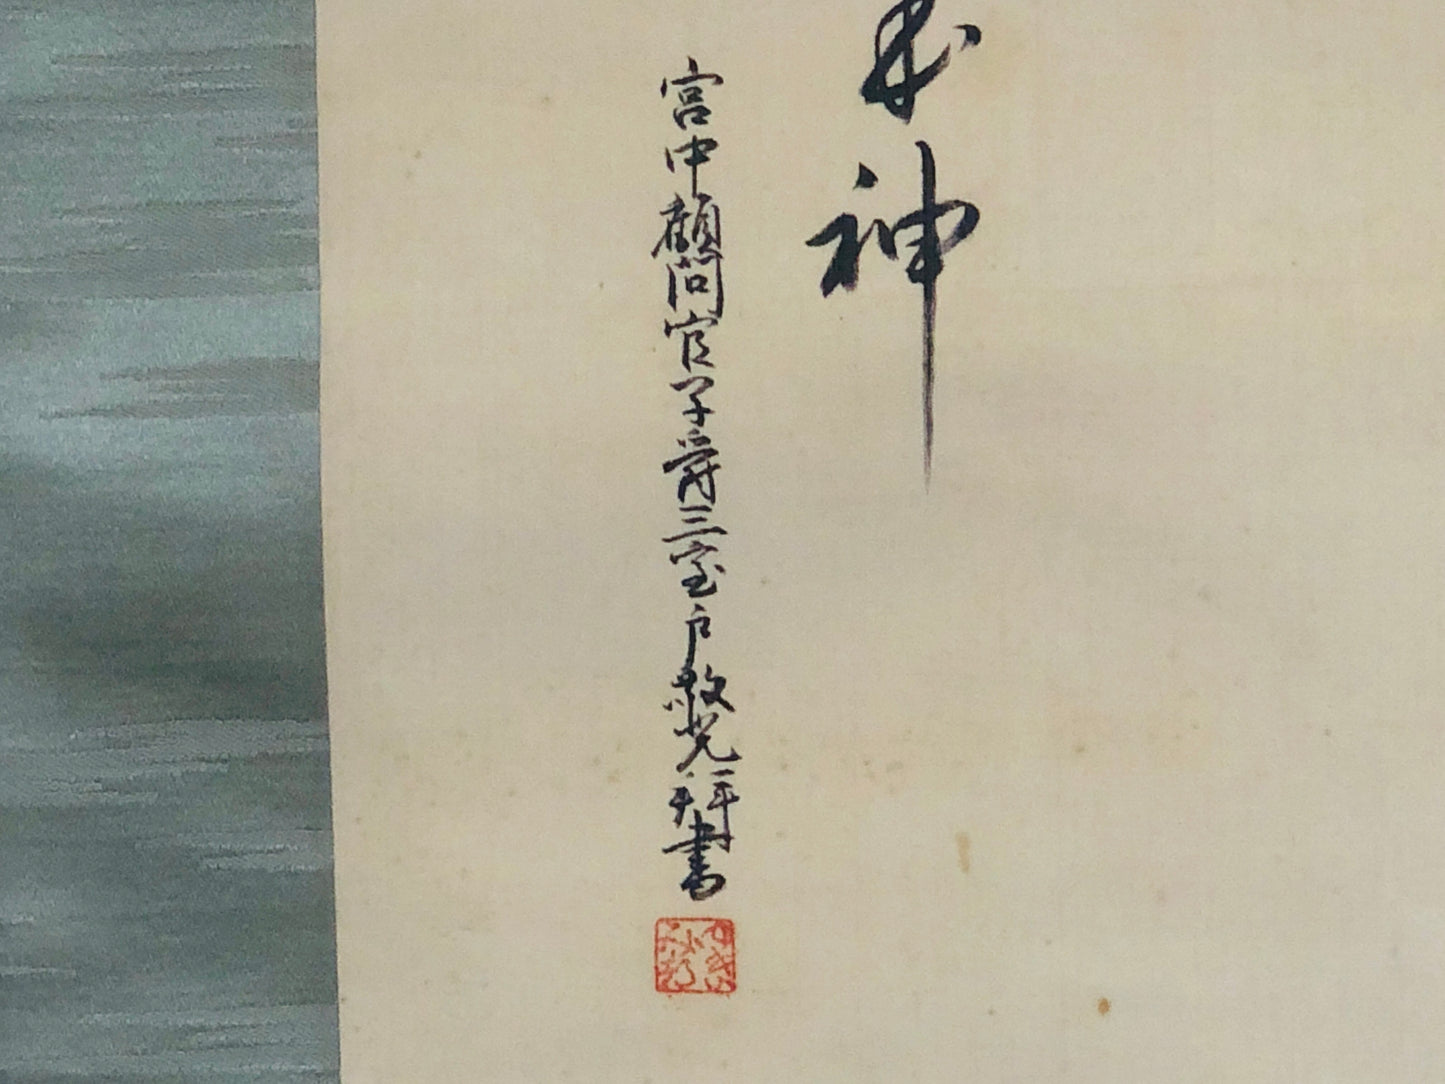 神
宮中顧問官子爵三室戸敬光拝書